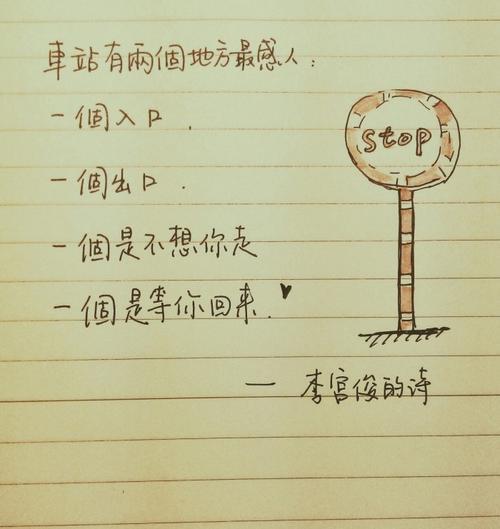 車站有兩個地方最感人：
一個入口．
一個出口．
一個是不想你走
一個是等你回来．
stop
— 李宫俊的诗